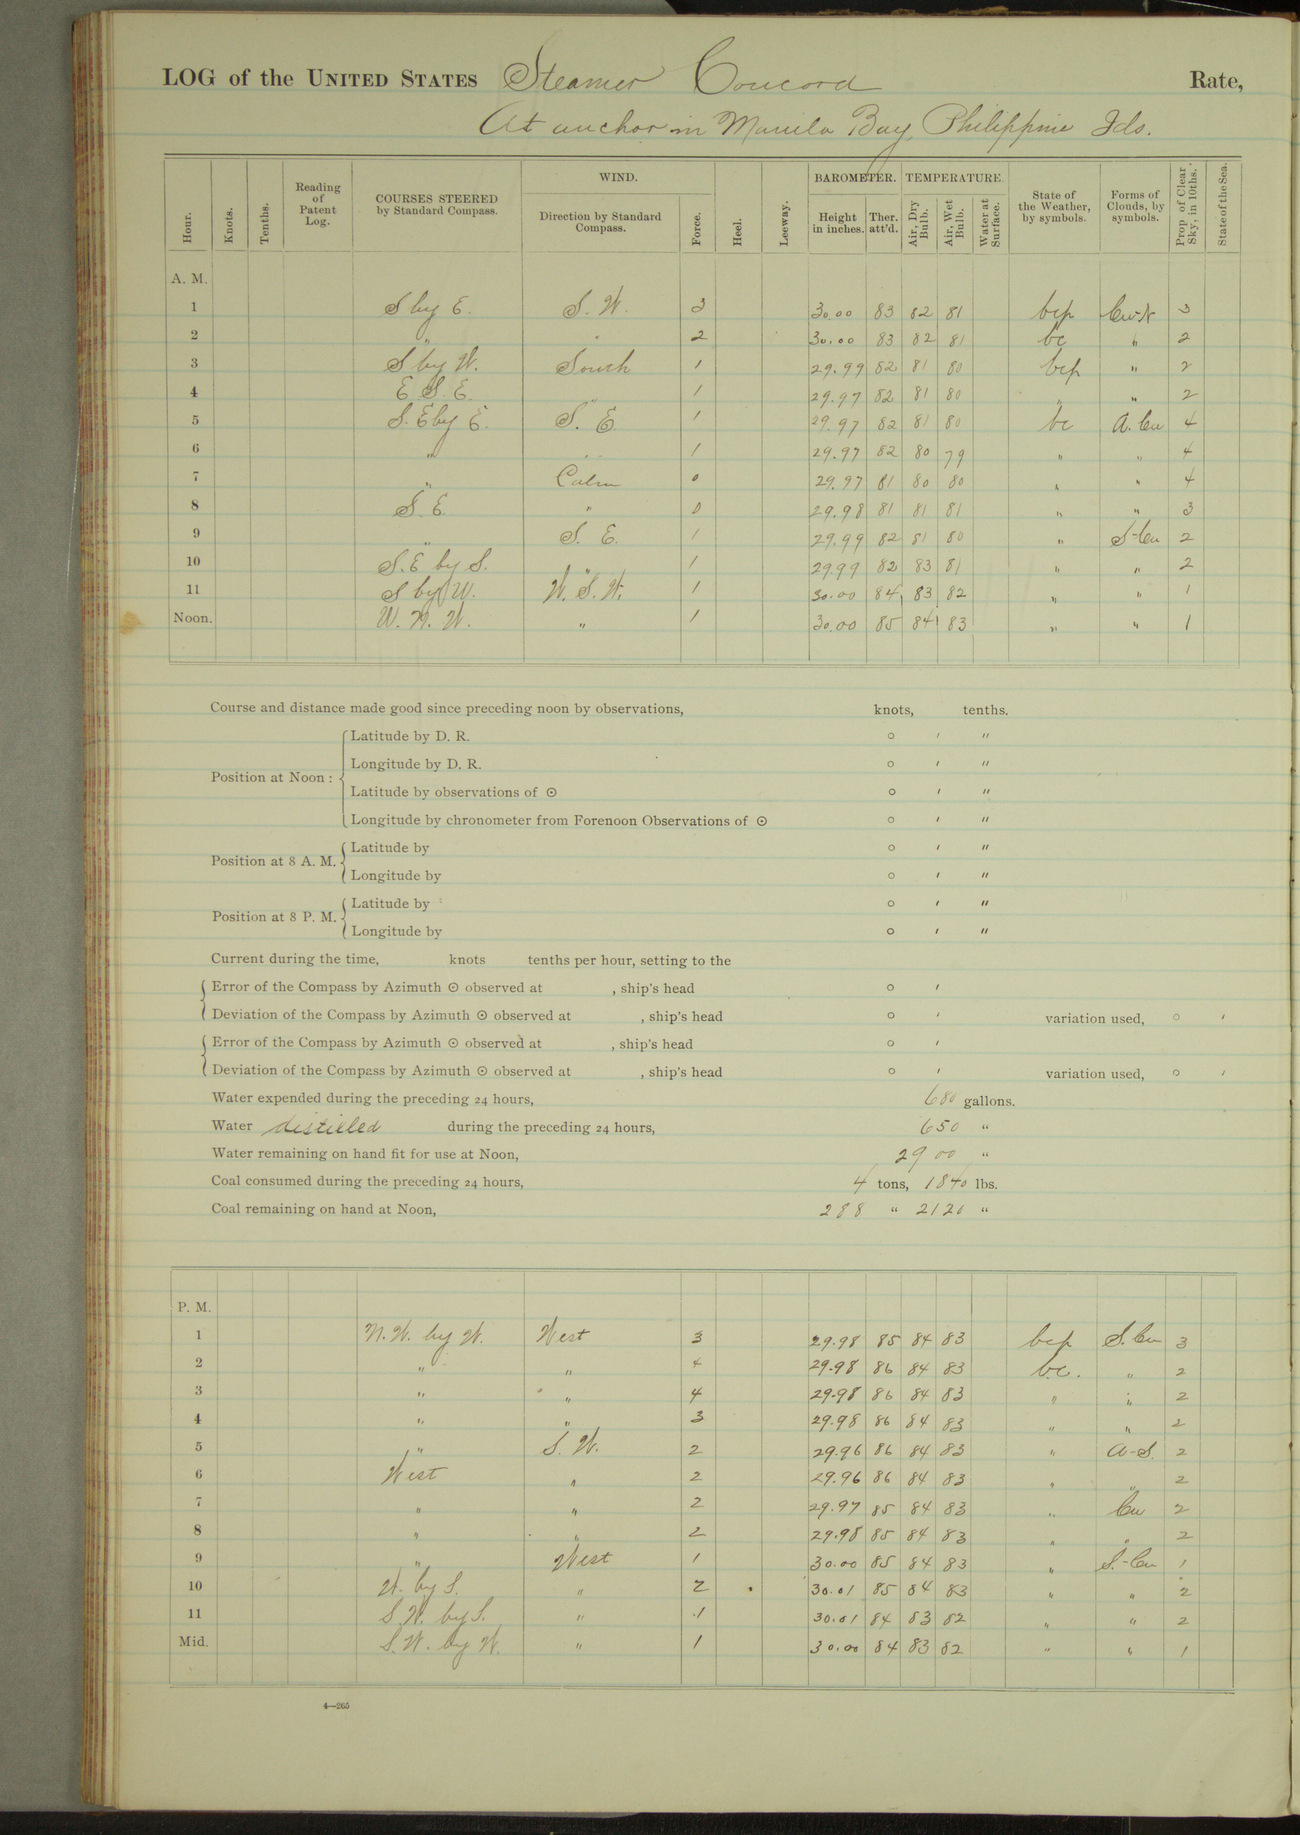 LOG of the UNITED STATES Steamer Concord Rate,
At anchor in Manila Bay, Philippine Ids.
Hour. Knots. Tenths. Reading of Patent Log. COURSES STEERED by Standard Compass. WIND. Direction by Standard Compass. Force. Heel. Leeway. BAROMETER. Height in inches. Ther. att'd. TEMPERATURE. Air, Dry Bulb. Air, Wet Bulb. Water at Surface. State of the Weather, by symbols. Forms of Clouds, by symbols. Prop. of Clear Sky, in 10ths. State of the Sea.
A. M.
1 S by E. S. W. 3 30.00 83 82 81 bcp Cu-N 3
2 " " 2 30.00 83 82 81 bc " 2
3 S by W. South 1 29.99 82 81 80 bcp " 2
4 E S. E. " 1 29.97 82 81 80 " " 2
5 S. E by E. S. E. 1 29.97 82 81 80 bc A. Cu 4
6 " " 1 29.97 82 80 79 " " 4
7 " Calm 0 29.97 81 80 80 " " 4
8 S. E. " 0 29.98 81 81 81 " " 3
9 " S. E. 1 29.99 82 81 80 " S-Cu 2
10 S. E by S. " 1 29.99 82 83 81 " " 2
11 S by W. W. S. W. 1 30.00 84 83 82 " " 1
Noon. W. N. W. " 1 30.00 85 84 83 " " 1
Course and distance made good since preceding noon by observations, knots, tenths.
Position at Noon:
Latitude by D. R. ° ′ ″
Longitude by D. R. ° ′ ″
Latitude by observations of ⊙ ° ′ ″
Longitude by chronometer from Forenoon Observations of ⊙ ° ′ ″
Position at 8 A. M.
Latitude by ° ′ ″
Longitude by ° ′ ″
Position at 8 P. M.
Latitude by ° ′ ″
Longitude by ° ′ ″
Current during the time, knots tenths per hour, setting to the
Error of the Compass by Azimuth ⊙ observed at , ship's head ° ′
Deviation of the Compass by Azimuth ⊙ observed at , ship's head ° ′ variation used, ° ′
Error of the Compass by Azimuth ⊙ observed at , ship's head ° ′
Deviation of the Compass by Azimuth ⊙ observed at , ship's head ° ′ variation used, ° ′
Water expended during the preceding 24 hours, 680 gallons.
Water distilled during the preceding 24 hours, 650 "
Water remaining on hand fit for use at Noon, 2900 "
Coal consumed during the preceding 24 hours, 4 tons, 1840 lbs.
Coal remaining on hand at Noon, 288 " 2120 "
P. M.
1 N. W. by W. West 3 29.98 85 84 83 bcp S. Cu 3
2 " " 4 29.98 86 84 83 bc. " 2
3 " " 4 29.98 86 84 83 " " 2
4 " " 3 29.98 86 84 83 " " 2
5 " S. W. 2 29.96 86 84 83 " A-S. 2
6 West " 2 29.96 86 84 83 " " 2
7 " " 2 29.97 85 84 83 " Cu 2
8 " " 2 29.98 85 84 83 " " 2
9 " West 1 30.00 85 84 83 " S.-Cu 1
10 W. by S. " 2 30.01 85 84 83 " " 2
11 S. W. by S. " 1 30.01 84 83 82 " " 2
Mid. S. W. by W. " 1 30.00 84 83 82 " " 1
4—265